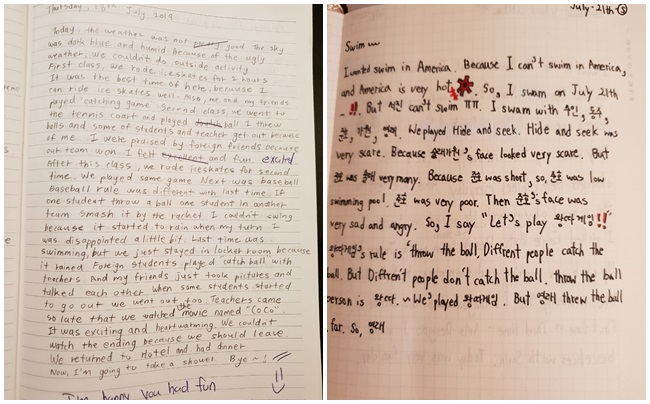 Thursday, 18th, July, 2019
Today, the weather was not good. The sky
was dark blue and humid. Because of the ugly
weather, we couldn't do outside activity
First class, we rode iceskates for 2 hours
It was the best time of here, because I
can ride ice skates well. Also, me and my friends
played 'catching game'. Second class, we went to
the tennis court and played ball. I threw
balls and some of students and teacher get out because
of me. I were praised by foreign friends because
out team won. I felt excellent and fun. excited
After this class, we rode iceskates for second
time. We played same game. Next was baseball
Baseball rule was different with last time. If
one student throw a ball one student in another
team smash it by the racket. I couldn't swing
because it started to rain when my turn. I
was disappointed a little bit. Last time was
swimming, but we just stayed in locker room because
it rained. Foreign students played 'catch ball' with
teachers. And my friends just took pictures and
talked each other. When some students started
to go out we went out too. Teachers came
so late that we watched the movie named "CoCo".
It was exciting and heartwarming. We couldn't
watch the ending because we should leave.
We returned to Hotel and had dinner
Now, I'm going to take a shower. Bye~!
I'm happy you had fun
July-21th
Swim~
I wanted swim in America. Because I can't swim in America,
and America is very hot. So, I swam on July 21th
~!! But can't swim ㅠㅠ. I swam with
We played Hide and seek. Hide and seek was
very scare. Because 's face looked very scare. But
was very many. Because was short, so, was low
swimming pool. was very poor. Then 's face was
very sad and angry. So, I say "Let's play 왕따게임!!"
왕따게임's rule is 'throw the ball. Diffrent people catch the
ball. But Diffrent people don't catch the ball. throw the ball
person is 왕따. ~ We played 왕따게임. But threw the ball
far. So,